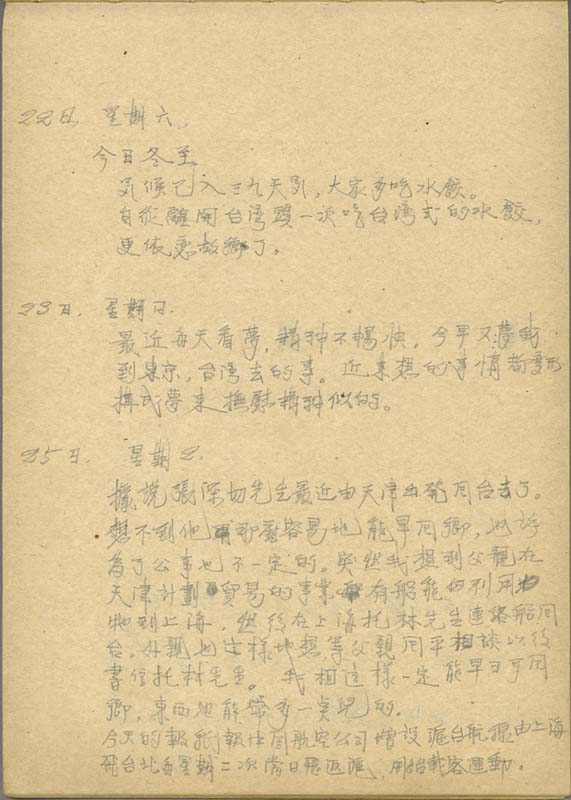 22日, 星期六,
今日冬至
気候已入三九天列, 大家多吃水餃。
自從離開台湾頭一次吃台湾式的水餃,
更依恋故鄉了。
23日. 星期日.
最近每天看夢, 精神不暢快. 今早又夢到
到東京, 台湾去的事。近来想的事情都变形
構成夢来撫慰精神似的。
25日. 星期2.
據說張深切先生最近由天津出発回台去了。
想不到他那麼容易地能早回鄉, 也許
為了公事也不一定的。突然我想到父親在
天津計劃貿易的事業有船能的利用
物到上海, 然後在上海托林先生連絡船回
台. 外親也这様地想等父親回平相談以後
書信托林先生。我相这様一定能早日可回
鄉, 東西也能帶多一奌児的.
今天的報紙報中国航空公司增設滬台航線由上海
飛台北每星期二次當日飛返滬, 開始載客運動.